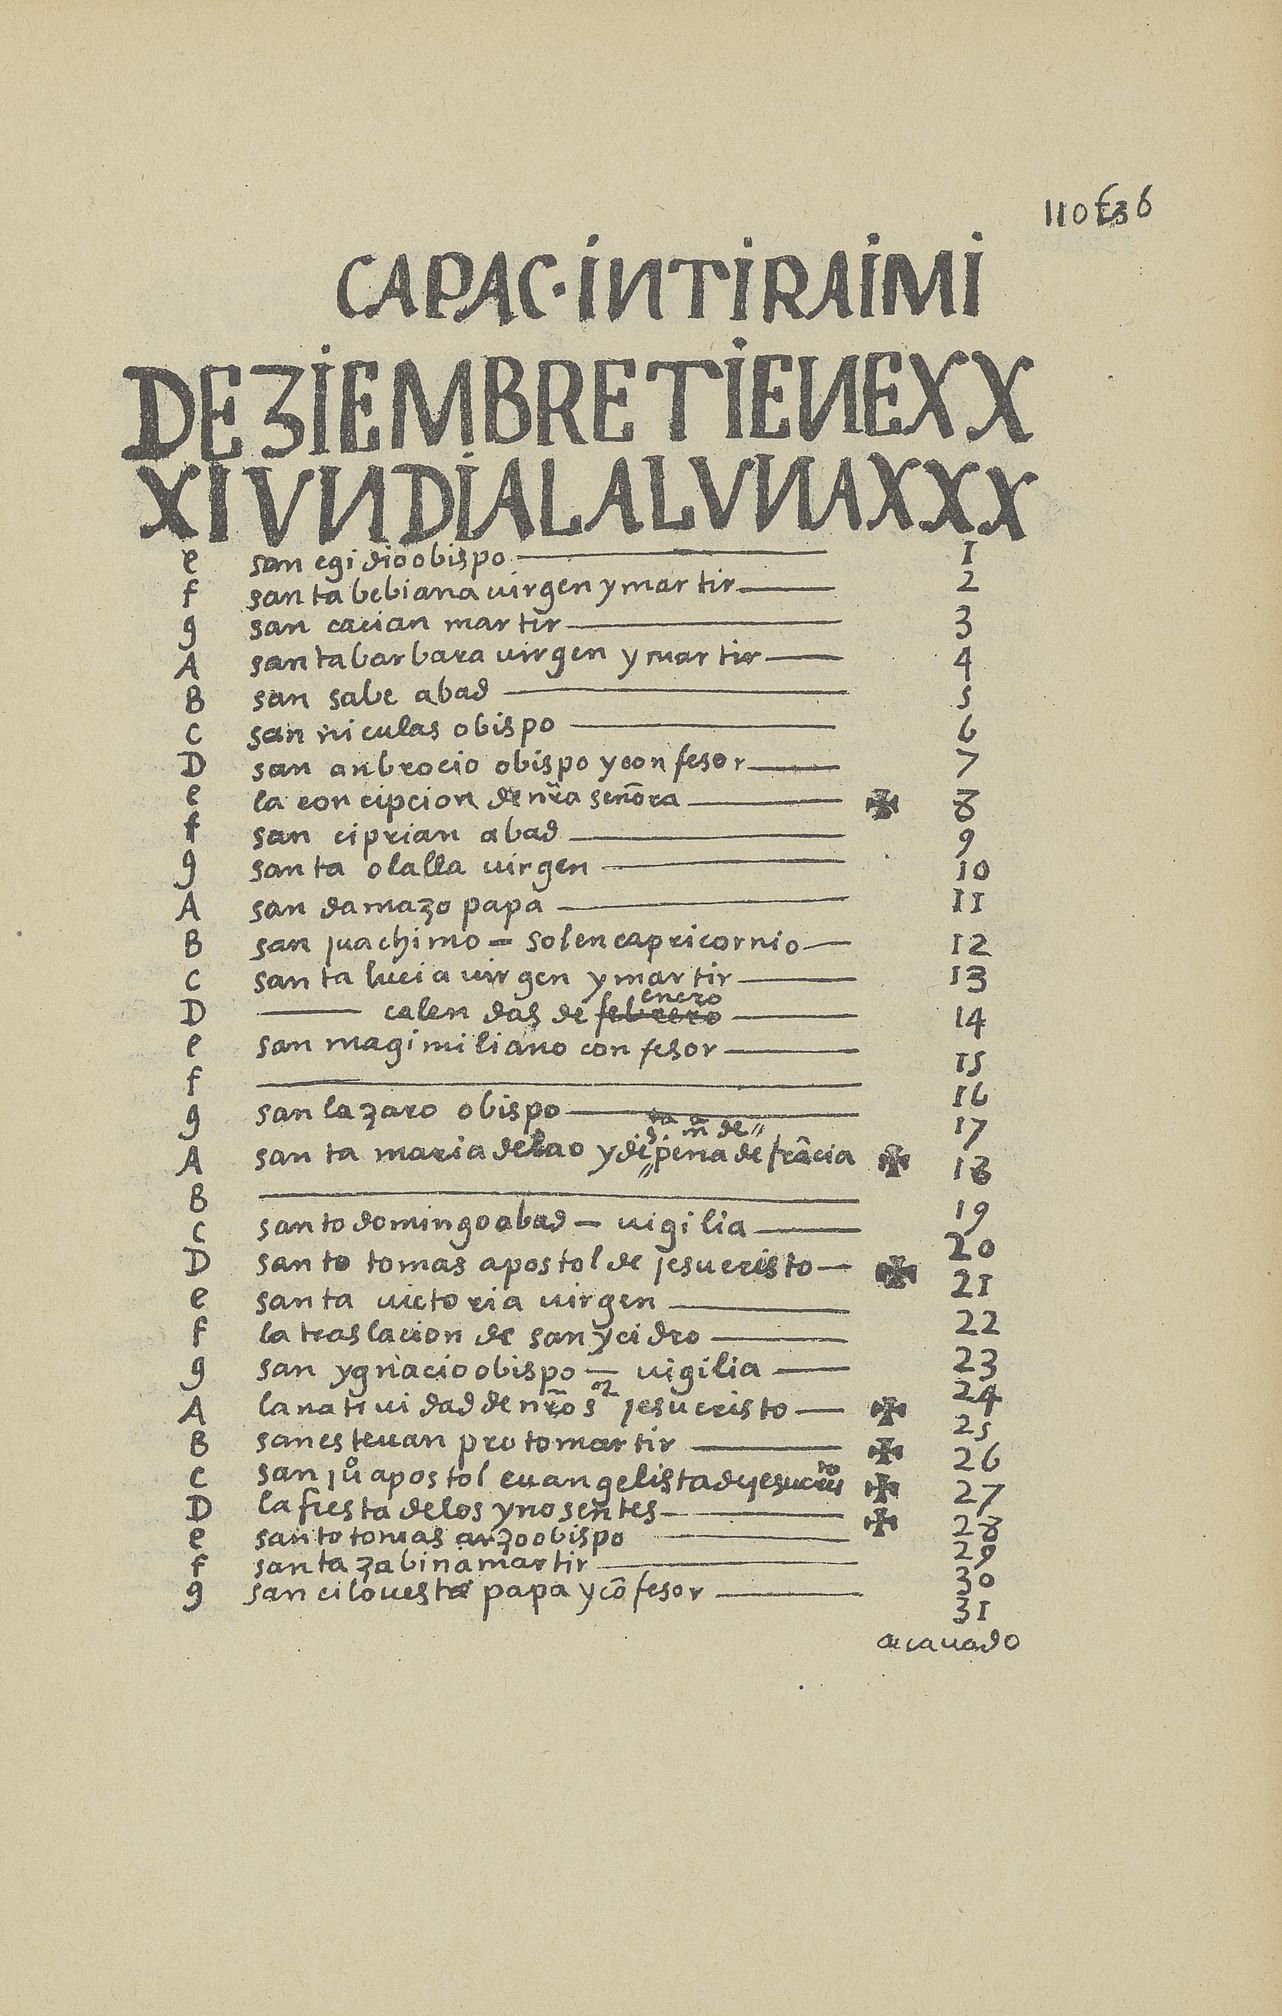 CAPAC·INTIRAIMI
DEZIEMBRETIENEXX
XIUNDIALALUNAXXX
e san egidio obispo 1
f santa bebiana uirgen y martir 2
g san cacian martir 3
A santa barbara uirgen y martir 4
B san sabe abad 5
C san niculas obispo 6
D san anbrocio obispo y confesor 7
e la concipcion de nr̃a señora ✠ 8
f san ciprian abad 9
g santa olalla uirgen 10
A san damazo papa 11
B san juachimo = sol en capricornio 12
C santa lucia uirgen y martir 13
enero
D calendas de febrero 14
e san magimiliano confesor 15
f 16
g san lazaro obispo 17
s.ta m.a de
A santa maria de la o y de pena de frãcia ✠ 18
B 19
C santo domingo abad – uigilia 20
D santo tomas apostol de jesucristo ✠ 21
e santa uictoria uirgen 22
f la traslacion de san ycidro 23
g san ygnacio obispo – uigilia 24
A la natiuidad de nr̃o s.or jesucristo ✠ 25
B san esteuan protomartir ✠ 26
C san juo apostol euangelista de jesucristo ✠ 27
D la fiesta de los ynosentes ✠ 28
e santo tomas arzoobispo 29
f santa zabina martir 30
g san cilouestre papa y cõfesor 31
acauado